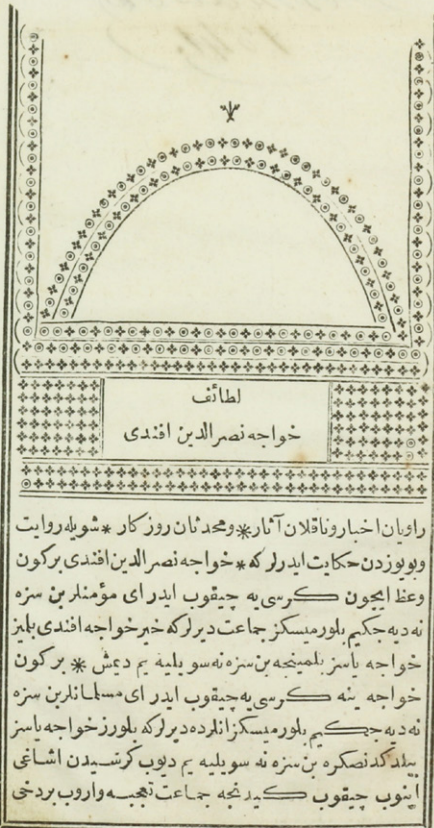 لطائف
خواجه نصرالدين افندى
راويان اخبار و ناقلان آثار * و محدثان روزكار * شويله روايت
و بويوزدن حكايت ايدرلركه * خواجه نصرالدين افندى بركون
وعظ ايچون كرسى يه چيقوب ايدر اى مؤمنلر بن سزه
نه ديه جكيم بلورميسكز جماعت ديرلركه خير خواجه افندى بلميز
خواجه ياسز بلمينجه بن سزه نه سويليه يم ديمش * بركون
خواجه ينه كرسى يه چيقوب ايدر اى مسلمانلر بن سزه
نه ديه جكيم بلورميسكز انلرده ديرلركه بلورز خواجه ياسز
بيلدكدنصكره بن سزه نه سويليه يم ديوب كرسيدن اشاغى
اينوب چيقوب كيدنجه جماعت تعجبه واروب بردخى